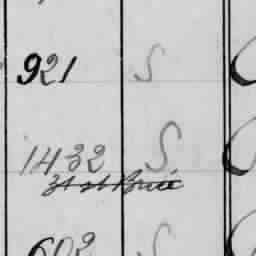 921 S
1432 S
602 S